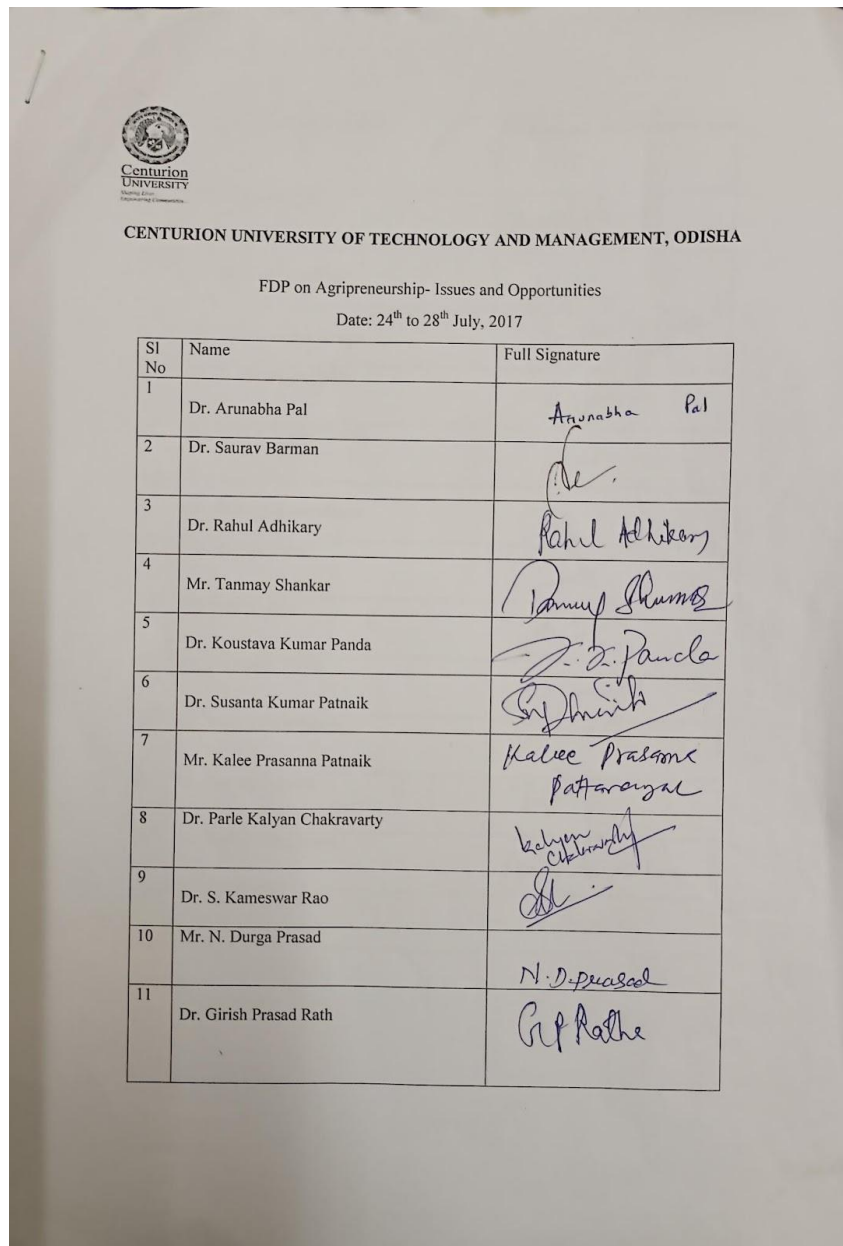 Centurion
UNIVERSITY
Shaping Lives...
Empowering Communities...
CENTURION UNIVERSITY OF TECHNOLOGY AND MANAGEMENT, ODISHA
FDP on Agripreneurship- Issues and Opportunities
Date: 24th to 28th July, 2017
Sl No Name Full Signature
1 Dr. Arunabha Pal Arunabha Pal
2 Dr. Saurav Barman
3 Dr. Rahul Adhikary Rahul Adhikary
4 Mr. Tanmay Shankar
5 Dr. Koustava Kumar Panda K.K.Panda
6 Dr. Susanta Kumar Patnaik
7 Mr. Kalee Prasanna Patnaik Kalee Prasanna
8 Dr. Parle Kalyan Chakravarty Kalyan Chakravarty
9 Dr. S. Kameswar Rao
10 Mr. N. Durga Prasad N.D.Prasad
11 Dr. Girish Prasad Rath GP Rathe